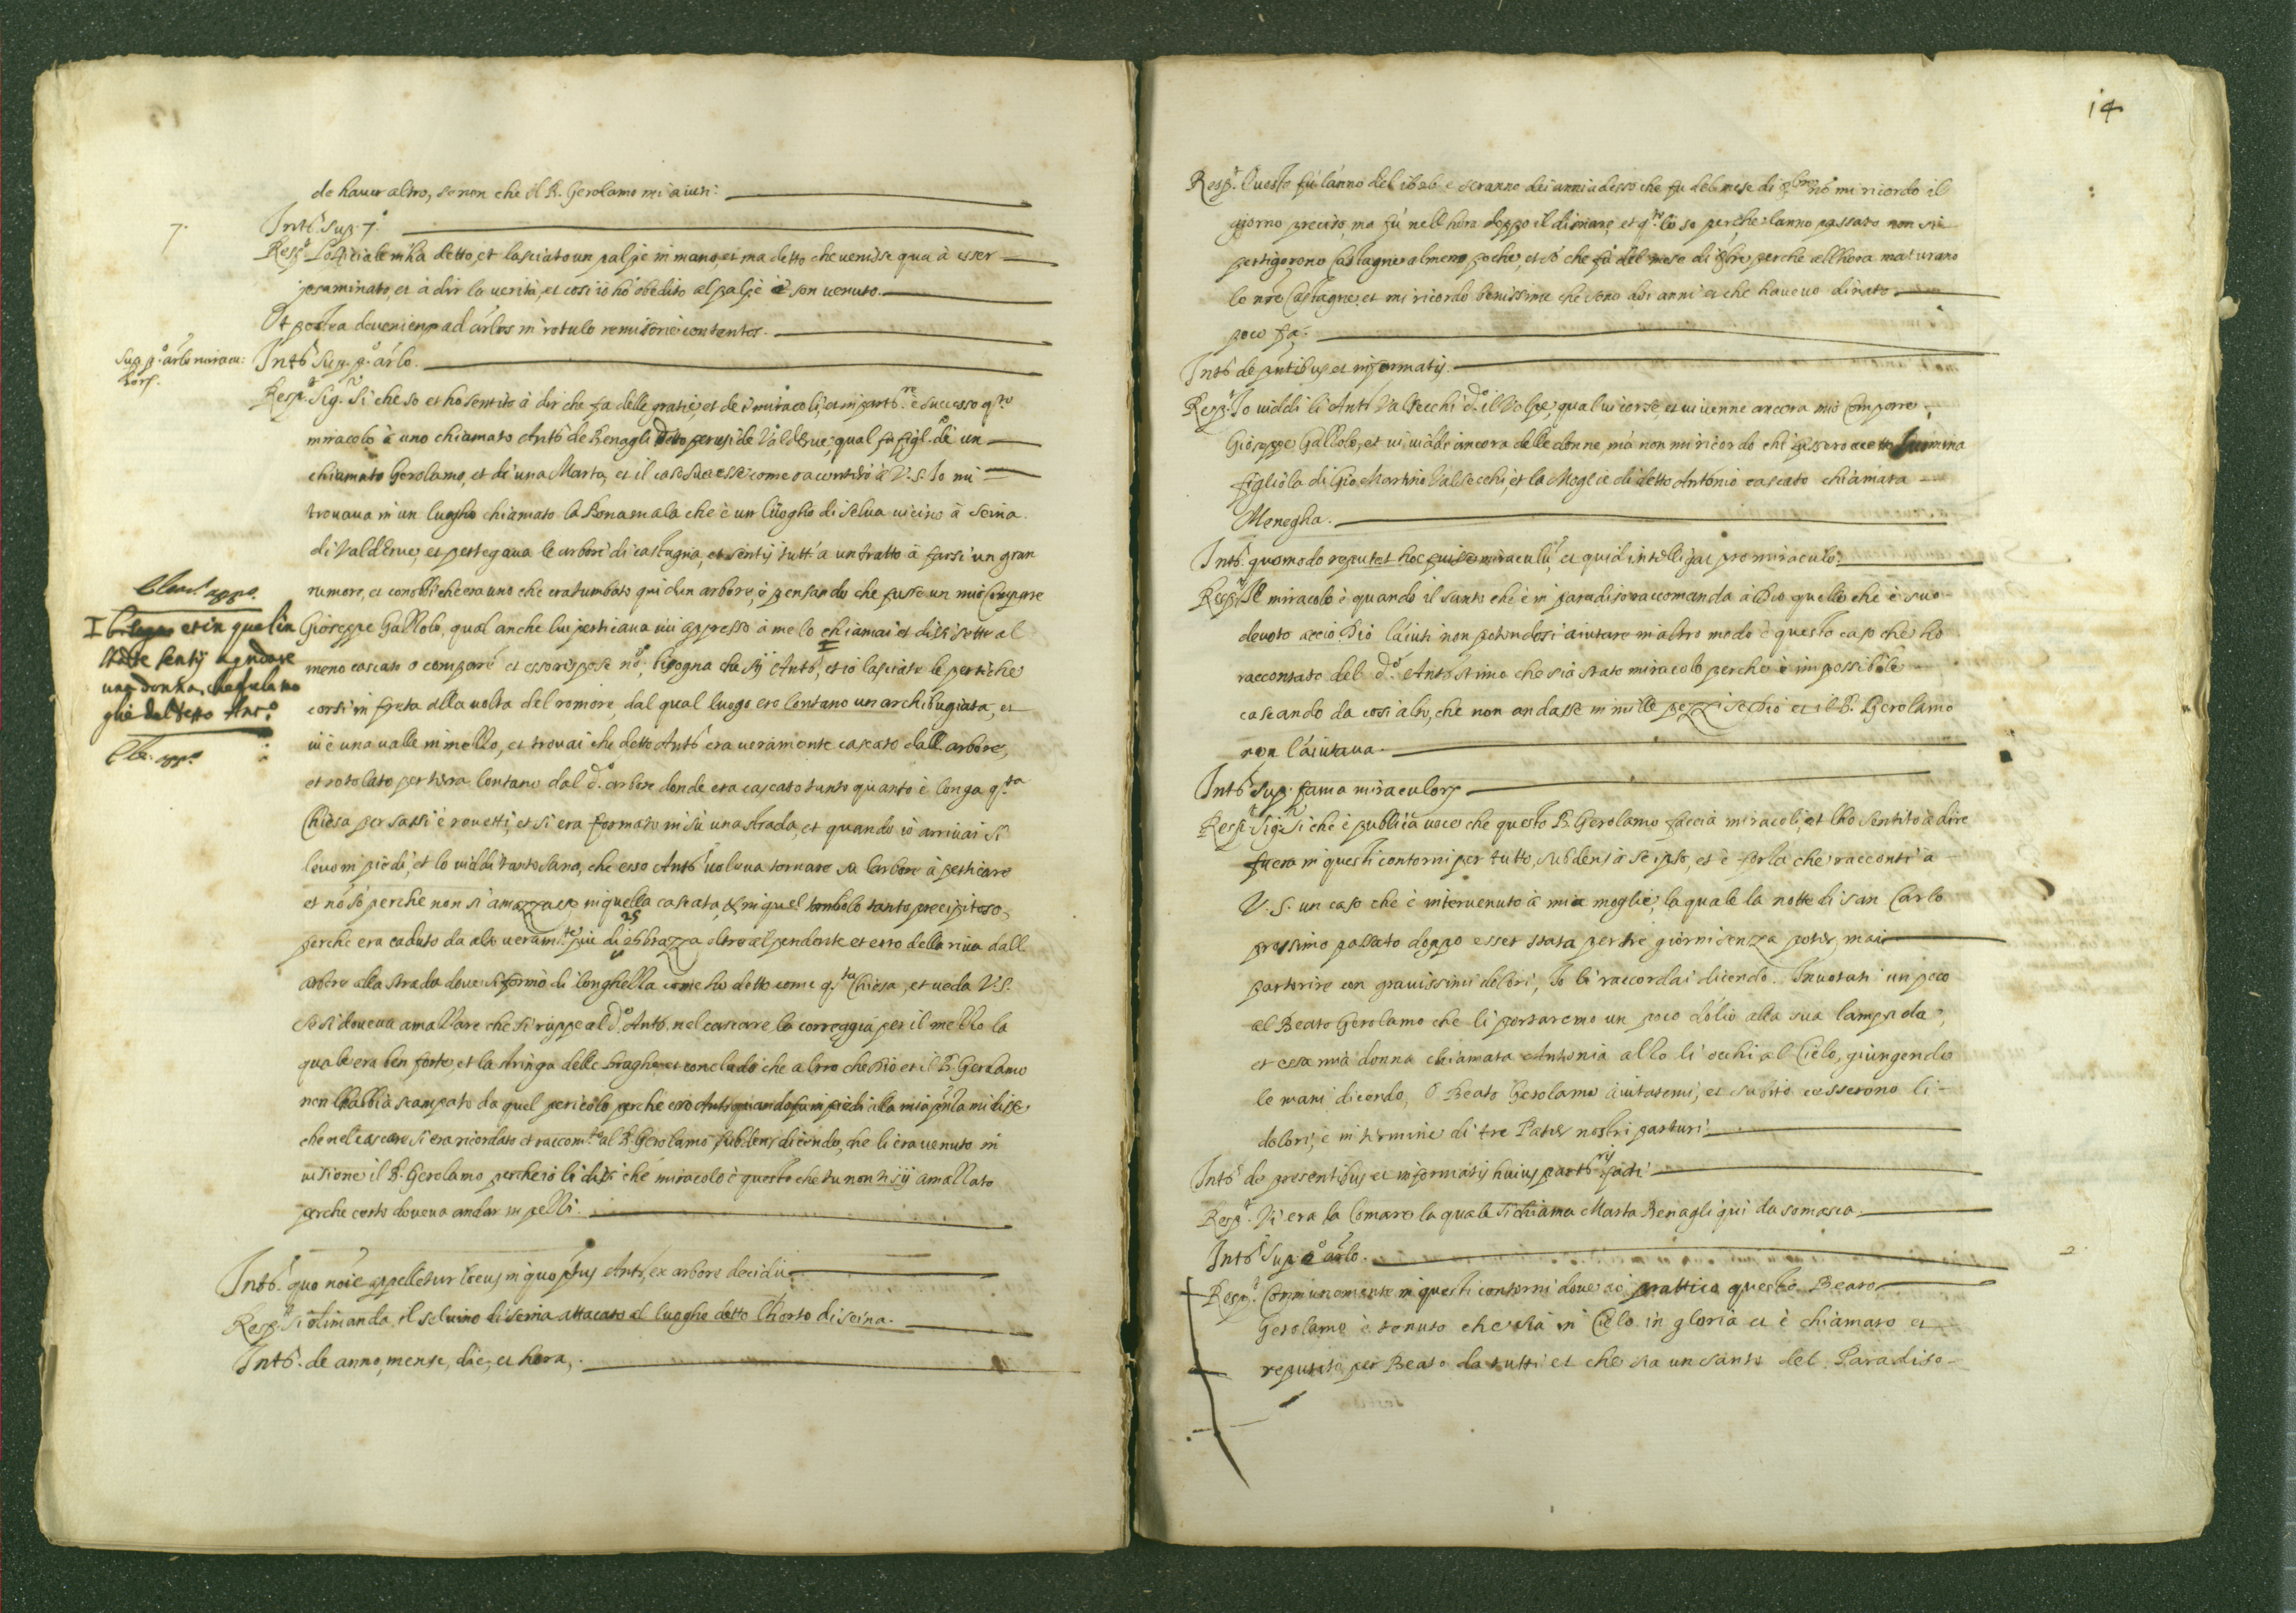 de haver altro, se non che il B. Gerolamo mi aiuti.
7.
Intts. sup. 7.º
Resp.t L'officiale m'ha detto, et lasciato un polize in mano, et m'a detto che venisse qua à esser
esaminato, et à dir la verità, et così io hò obedito al polize è son venuto.
Et postea deveniens ad arlos in rotulo remisorie contentos.
Sup. p.º arlo miracu:
lors.
Intts. sup. p.º arlo.
Resp.t Sig.r Si che so et ho sentito à dir che fa delle gratie, et de i miracoli, et in partt.re è successo q.to
miracolo à uno chiamato Antt.º de Benagli Detto de Valderve, qual fu figl.º de un
chiamato Gerolamo, et de una Marta, et il caso successe come racontarò à V.S. Io mi
trovava in un luogho chiamato la Bonamala che è un luogho di selva vicino à Seina
di Valderve, et pertegava le arbori di castagna, et sentij tutt'a un tratto à farsi un gran
rumore, et conobbi che era uno che era tumbato giù d'un arbore, è pensando che fusse un mio Compare
Gioseppe Gallolo, qual anche lui perticava ivi appresso à me lo chiamai et dissi sette al
meno cascato o compare et esso rispose nò, bisogna che sij Antt.º, et io lasciate le pertiche
corsi in freta alla volta del romore, dal qual luogo ero lontano un archibugiata, et
ivi è una valle in mezzo, et trovai che detto Antt.º era veramente cascato dall'arbore,
et rotolato per terra lontano dal d.º arbore donde era cascato tanto quanto è longa q.sta
Chiesa per sassi è rovetti, et si era fermato in sù una strada, et quando io arrivai si
levò in piedi, et lo viddi tanto sano, che esso Antt.º voleva tornare su l'arbore à perticare
et nò sò perche non si amazzasse in quella cascata, & in quel tombolo tanto precipitoso,
perche era caduto da alto veram.te piu di 25 brazza oltre al pendente et erto della riva dall
arbore alla strada dove si fermò di longhezza come ho detto come q.sta Chiesa, et veda V.S.
se si doveva amazzare che si ruppe al d.º Antt.º nel cascare la correggia per il mezzo la
quale era ben forte, et la stringa delle braghe, et concludo che altro che Dio et il B. Gerolamo
non l'habbia scampato da quel pericolo perche esso Antt.º quando fu in piedi alla mia pnza mi disse,
che nel cascare si era ricordato et raccom.to al B. Gerolamo subdens dicendo, che li era venuto in
visione il B. Gerolamo perche io li dissi che miracolo è questo che tu non ti sij amazzato
perche certo doveva andar in pezzi.
Clem.s app.s
et in quel in
stante sentij a gridare
una donna, che fu la mo
glie del detto Ant.º
Cle. app.s
Intts. quo noie appelletur locus in quo ptus Antt.s ex arbore decidit.
Resp.t Si dimanda il selvino di Seina attacato al luogho detto l'horto di Seina.
Intts. de anno, mense, die, et hora,.
14
Resp.t Questo fu l'anno del 1626 è seranno doi anni adesso che fu del mese di 8bre nò mi ricordo il
giorno preciso, ma fù nell'hora doppo il disinare, et q.to lo so perche l'anno passato non si
pertigorono Castagne almeno poche, et sò che fù del mese di 8bre perche all'hora maturano
le nre Castagne, et mi ricordo benissimo che sono doi anni et che havevo disnato
poco fa.
Intts. de pntibus et informatis.
Resp.t Io viddi li Antt.º Valsecchi d.º il Volpe, qual vi corse, et vi venne ancora mio Compare
Gioseppe Gallolo, et vi viddi ancora delle donne, mà non mi ricordo chi fossero eccetto
figliola di Gio Martino Valsecchi, et la Moglie di detto Antonio cascato chiamata
Menegha.
Intts. quomodo reputet hoc fuisse miraculu, et quid intelligat pro miraculo.
Resp.t Il miracolo è quando il santo che è in paradiso raccomanda à Dio quello che è suo
devoto acciò Dio l'aiuti non potendosi aiutare in altro modo è questo caso che ho
raccontato del d.º Antt.º stimo che sia stato miracolo perche è impossibile
cascando da così alto, che non andasse in mille pezzi se Dio et il B. Gerolamo
non l'aiutava.
Intts. sup. fama miraculors
Resp.t Sig.r Si che è publica voce che questo B. Gerolamo faccia miracoli, et l'ho sentito à dire
fuora in questi contorni per tutto, subdens à se ipso, et è forza che racconti à
V.S. un caso che è intervenuto à mia moglie, la quale la notte di san Carlo
prossimo passato doppo esser stata per tre giorni senza poter mai
parturire con gravissimi dolori, Io li raccordai dicendo. Invotati un poco
al Beato Gerolamo che li portaremo un poco d'olio alla sua lampeda,
et essa mia donna chiamata Antonia alzò li occhi al Cielo, giungendo
le mani dicendo, O Beato Gerolamo aiutatemi, et subito cesserono li
dolori, è in termine di tre Pater nostri parturì.
Intts. de presentibus et informatis huius partt.ris facti
Resp.t Vi era la Comare la quale si chiama Marta Benagli qui da Somasca.
2
Intts. sup. 2º arlo.
Resp.t Communemente in questi contorni dove si prattica questo Beato
Gerolamo è tenuto che stia in Cielo in gloria et è chiamato et
reputato per Beato da tutti et che sia un santo del Paradiso